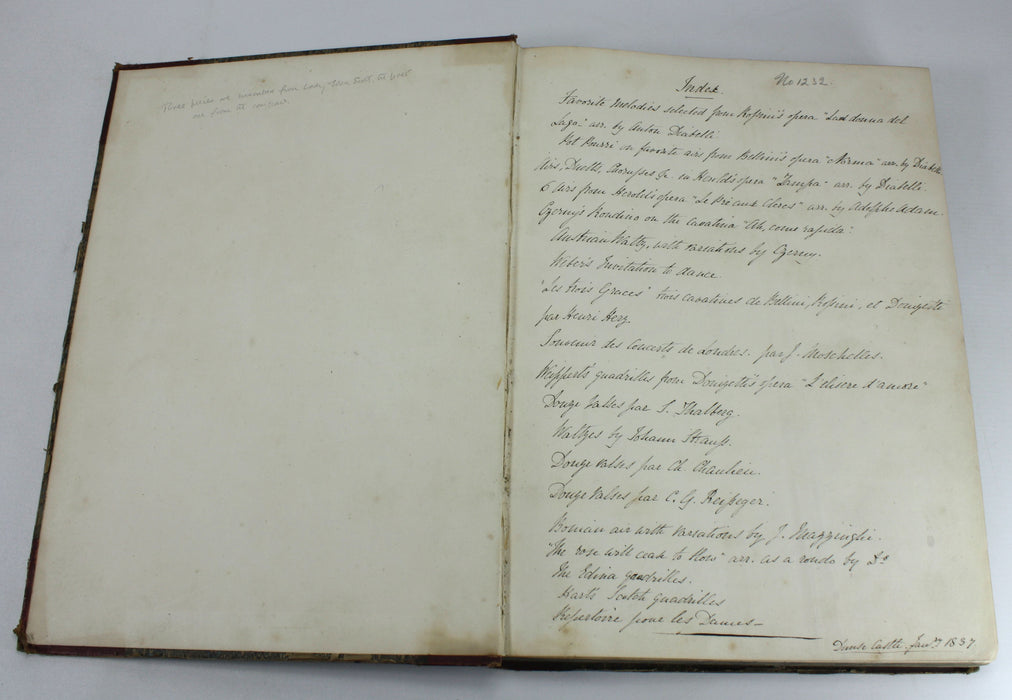 Three pieces are from Lady
one from the
Index
No 1232
Favorite Melodies selected from Rossini's opera "La donna del
Lago" arr. by Anton Diabelli
Pot Pourri on favorite airs from Bellini's opera "Norma" arr. by Diabelli
Airs, Duetts, Chorusses &c. in Herold's opera "Zampa" arr. by Diabelli.
6 Airs from Herold's opera "Le Pré aux Clercs" arr. by Adolphe Adam.
Czerny's Rondino on the cavatina "Ah, come rapida".
Austrian Waltz, with variations by Czerny.
Weber's Invitation to dance.
"Les trois Graces" trois cavatines de Bellini, Rossini, et Donizetti
par Henri Herz.
Souvenir des Concerts de Londres. par J. Moschelles.
Weippert's quadrilles from Donizetti's opera "L'elisere d'amore"
Douze Valses par S. Thalberg.
Waltzes by Johann Strauss.
Douze valses par Ch. Chaulieu.
Douze Valses par C. G. Reisseger.
Roman air with variations by J. Mazzinghi.
"The rose will cease to blow" arr. as a rondo by Do
The Edina quadrilles.
Hart's Scotch quadrilles
Répertoire pour les Dames—
Dunse Castle. Jany 1837